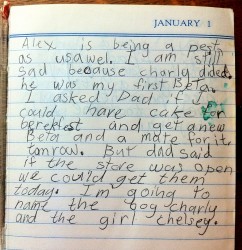 JANUARY 1
Alex is being a pest
as usawel. I am still
sad because charly dided.
he was my first Beta.
I asked Dad if I
could have cake for
berekfest and get a new
Beta and a mate for it
tomrow. But dad said
if the store was open
we could get them
today. I'm going to
name the boy charly
and the girl chelsey.